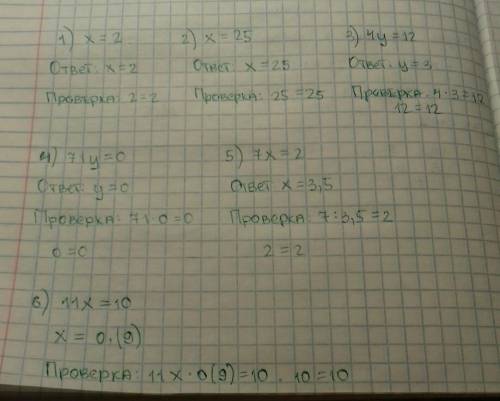 1) x=2 2) x=25 3) 4y=12
Ответ: x=2 Ответ: x=25 Ответ: y=3
Проверка: 2=2 Проверка: 25=25 Проверка: 4·3=12
12=12
4) 71y=0 5) 7x=2
Ответ: y=0 Ответ x=3,5
Проверка: 71·0=0 Проверка: 7:3,5=2
0=0 2=2
6) 11x=10
x=0,(9)
Проверка: 11x·0(9)=10. 10=10